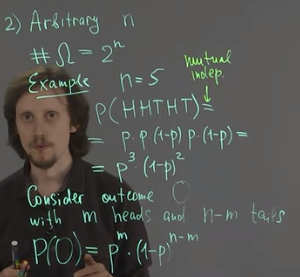 2) Arbitrary n
# Ω = 2ⁿ
Example n = 5
mutual
indep.
P(HHTHT) =
= p·p(1-p)p·(1-p) =
= p³·(1-p)²
Consider outcome O
with m heads and n-m tails
P(O) = pᵐ·(1-p)ⁿ⁻ᵐ